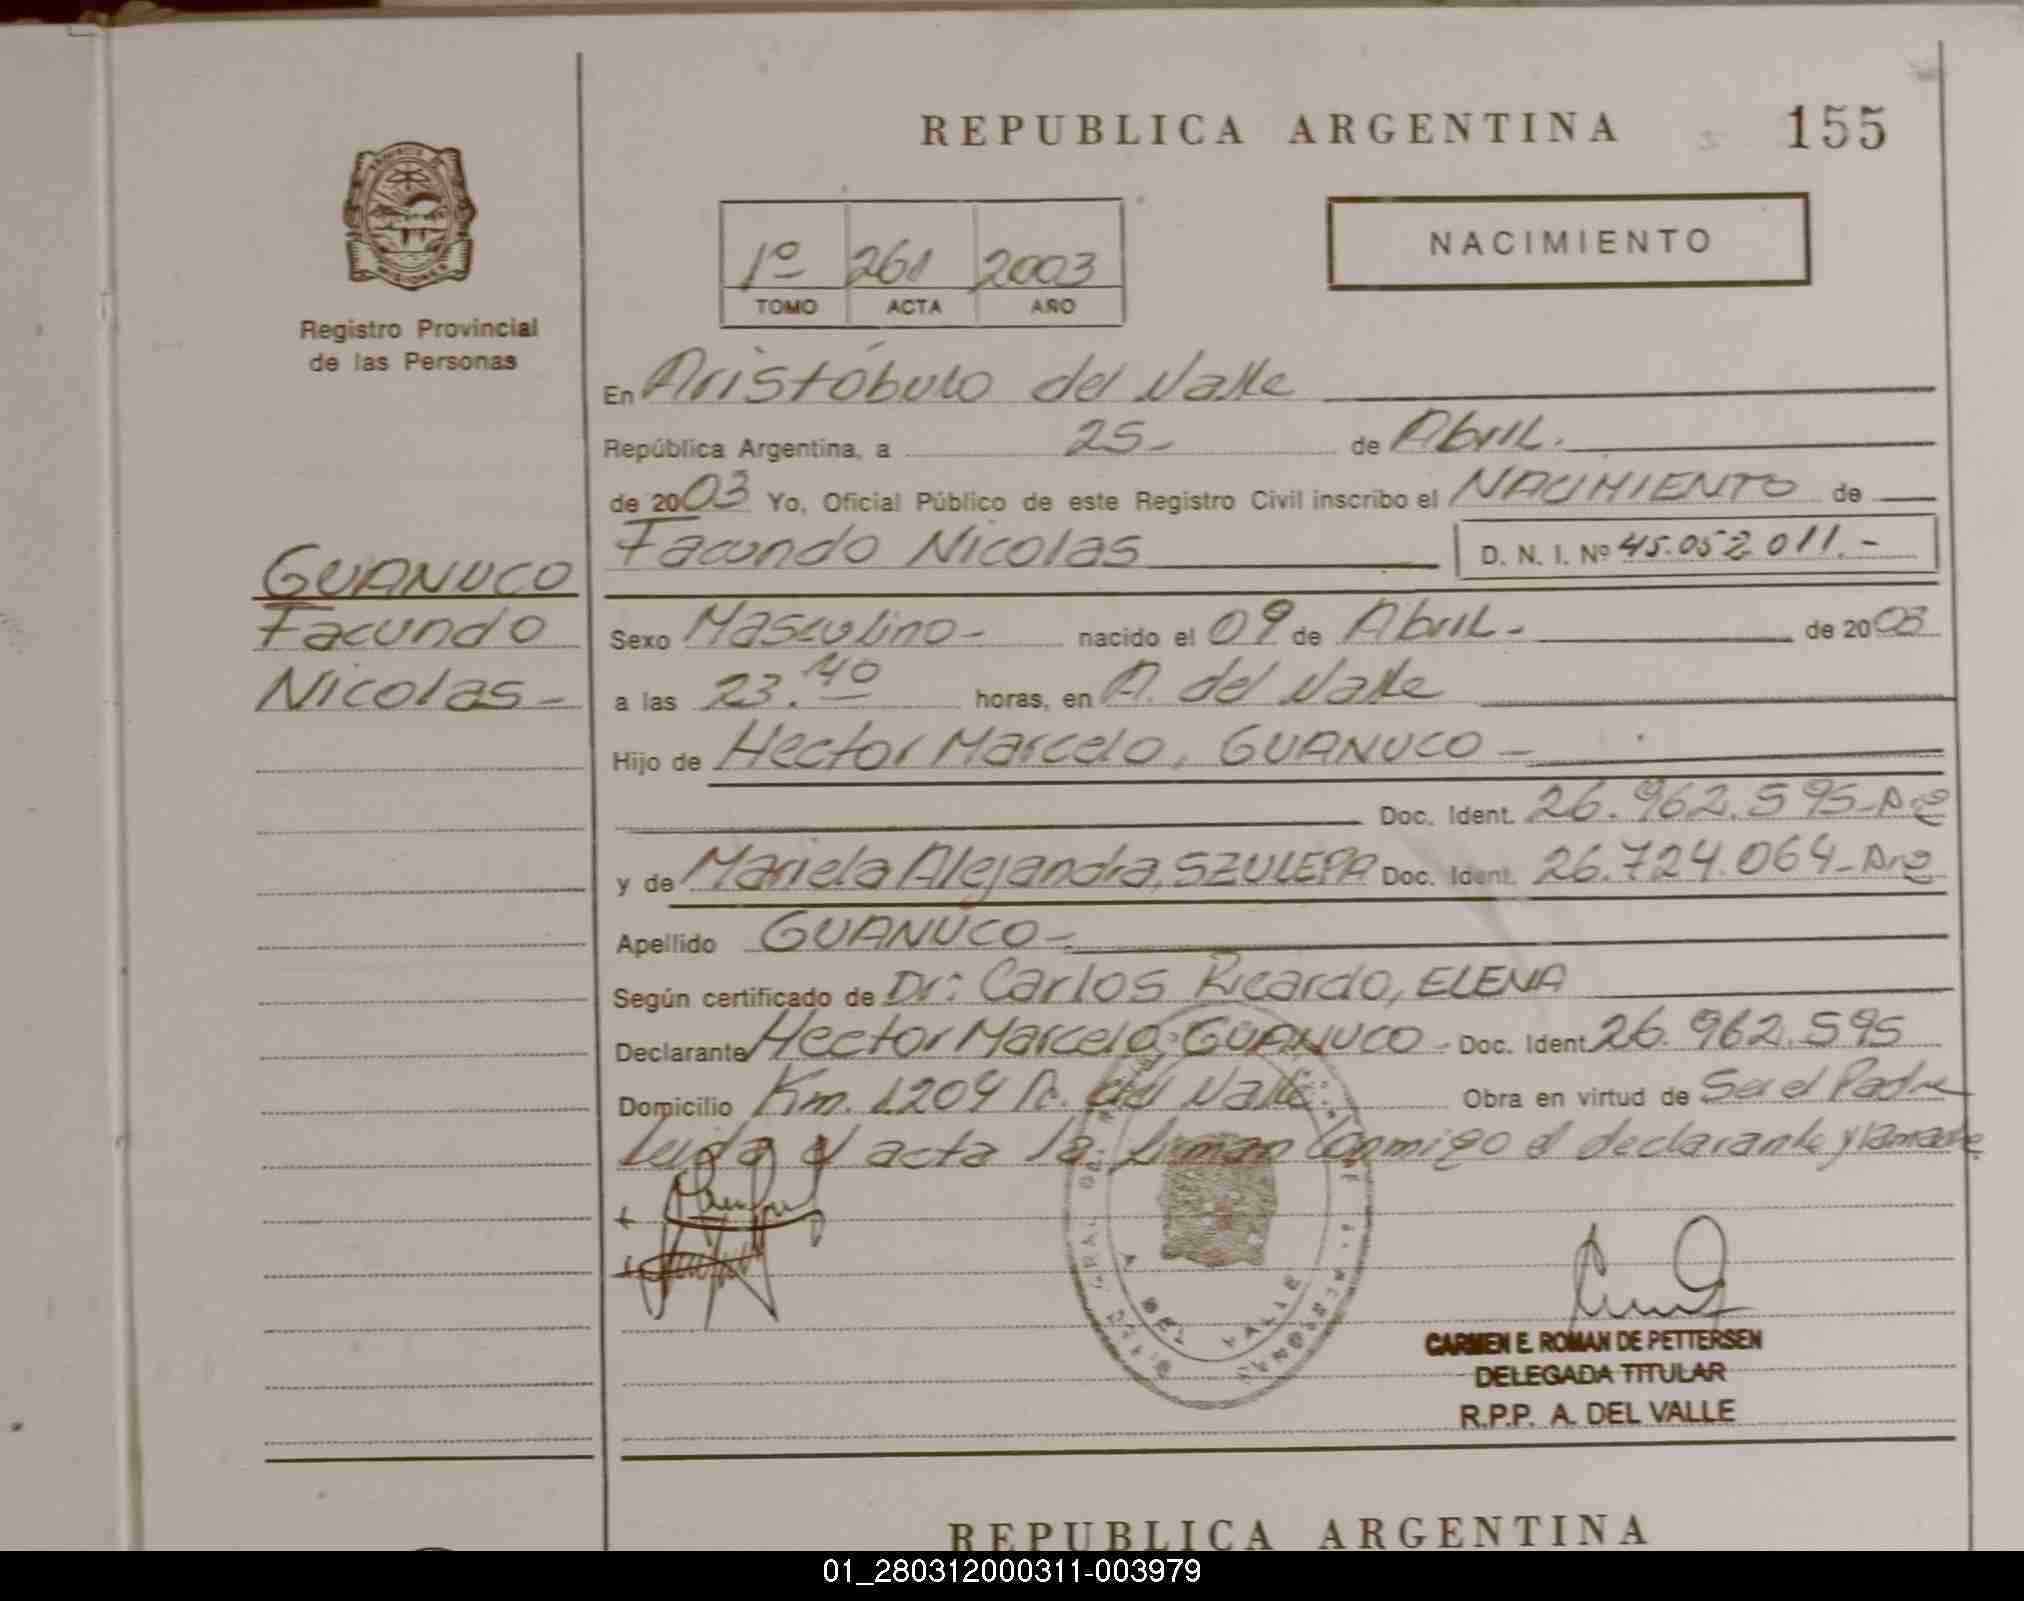 REPUBLICA ARGENTINA 155
PROVINCIA DE
MISIONES
Registro Provincial
de las Personas
1º 261 2003
TOMO ACTA AÑO
NACIMIENTO
En Aristóbulo del Valle
República Argentina, a 25- de Abril.
de 2003 Yo, Oficial Público de este Registro Civil inscribo el NACIMIENTO de
Facundo Nicolas D. N. I. Nº 45.052.011.-
GUANUCO
Facundo
Nicolas-
Sexo Masculino- nacido el 09 de Abril- de 2003
a las 23.40 horas, en A. del Valle
Hijo de Hector Marcelo, GUANUCO-
Doc. Ident. 26.962.595-Arg
y de Mariela Alejandra, SZULEPA Doc. Ident. 26.724.064-Arg
Apellido GUANUCO-
Según certificado de Dr: Carlos Ricardo, ELENA
Declarante Hector Marcelo, GUANUCO- Doc. Ident. 26.962.595
Domicilio Km. 1204 A. del Valle. Obra en virtud de Ser el Padre
Leida el acta la firman conmigo el declarante y la madre
A. DEL VALLE
MISIONES
CARMEN E. ROMAN DE PETTERSEN
DELEGADA TITULAR
R.P.P. A. DEL VALLE
REPUBLICA ARGENTINA
01_280312000311-003979